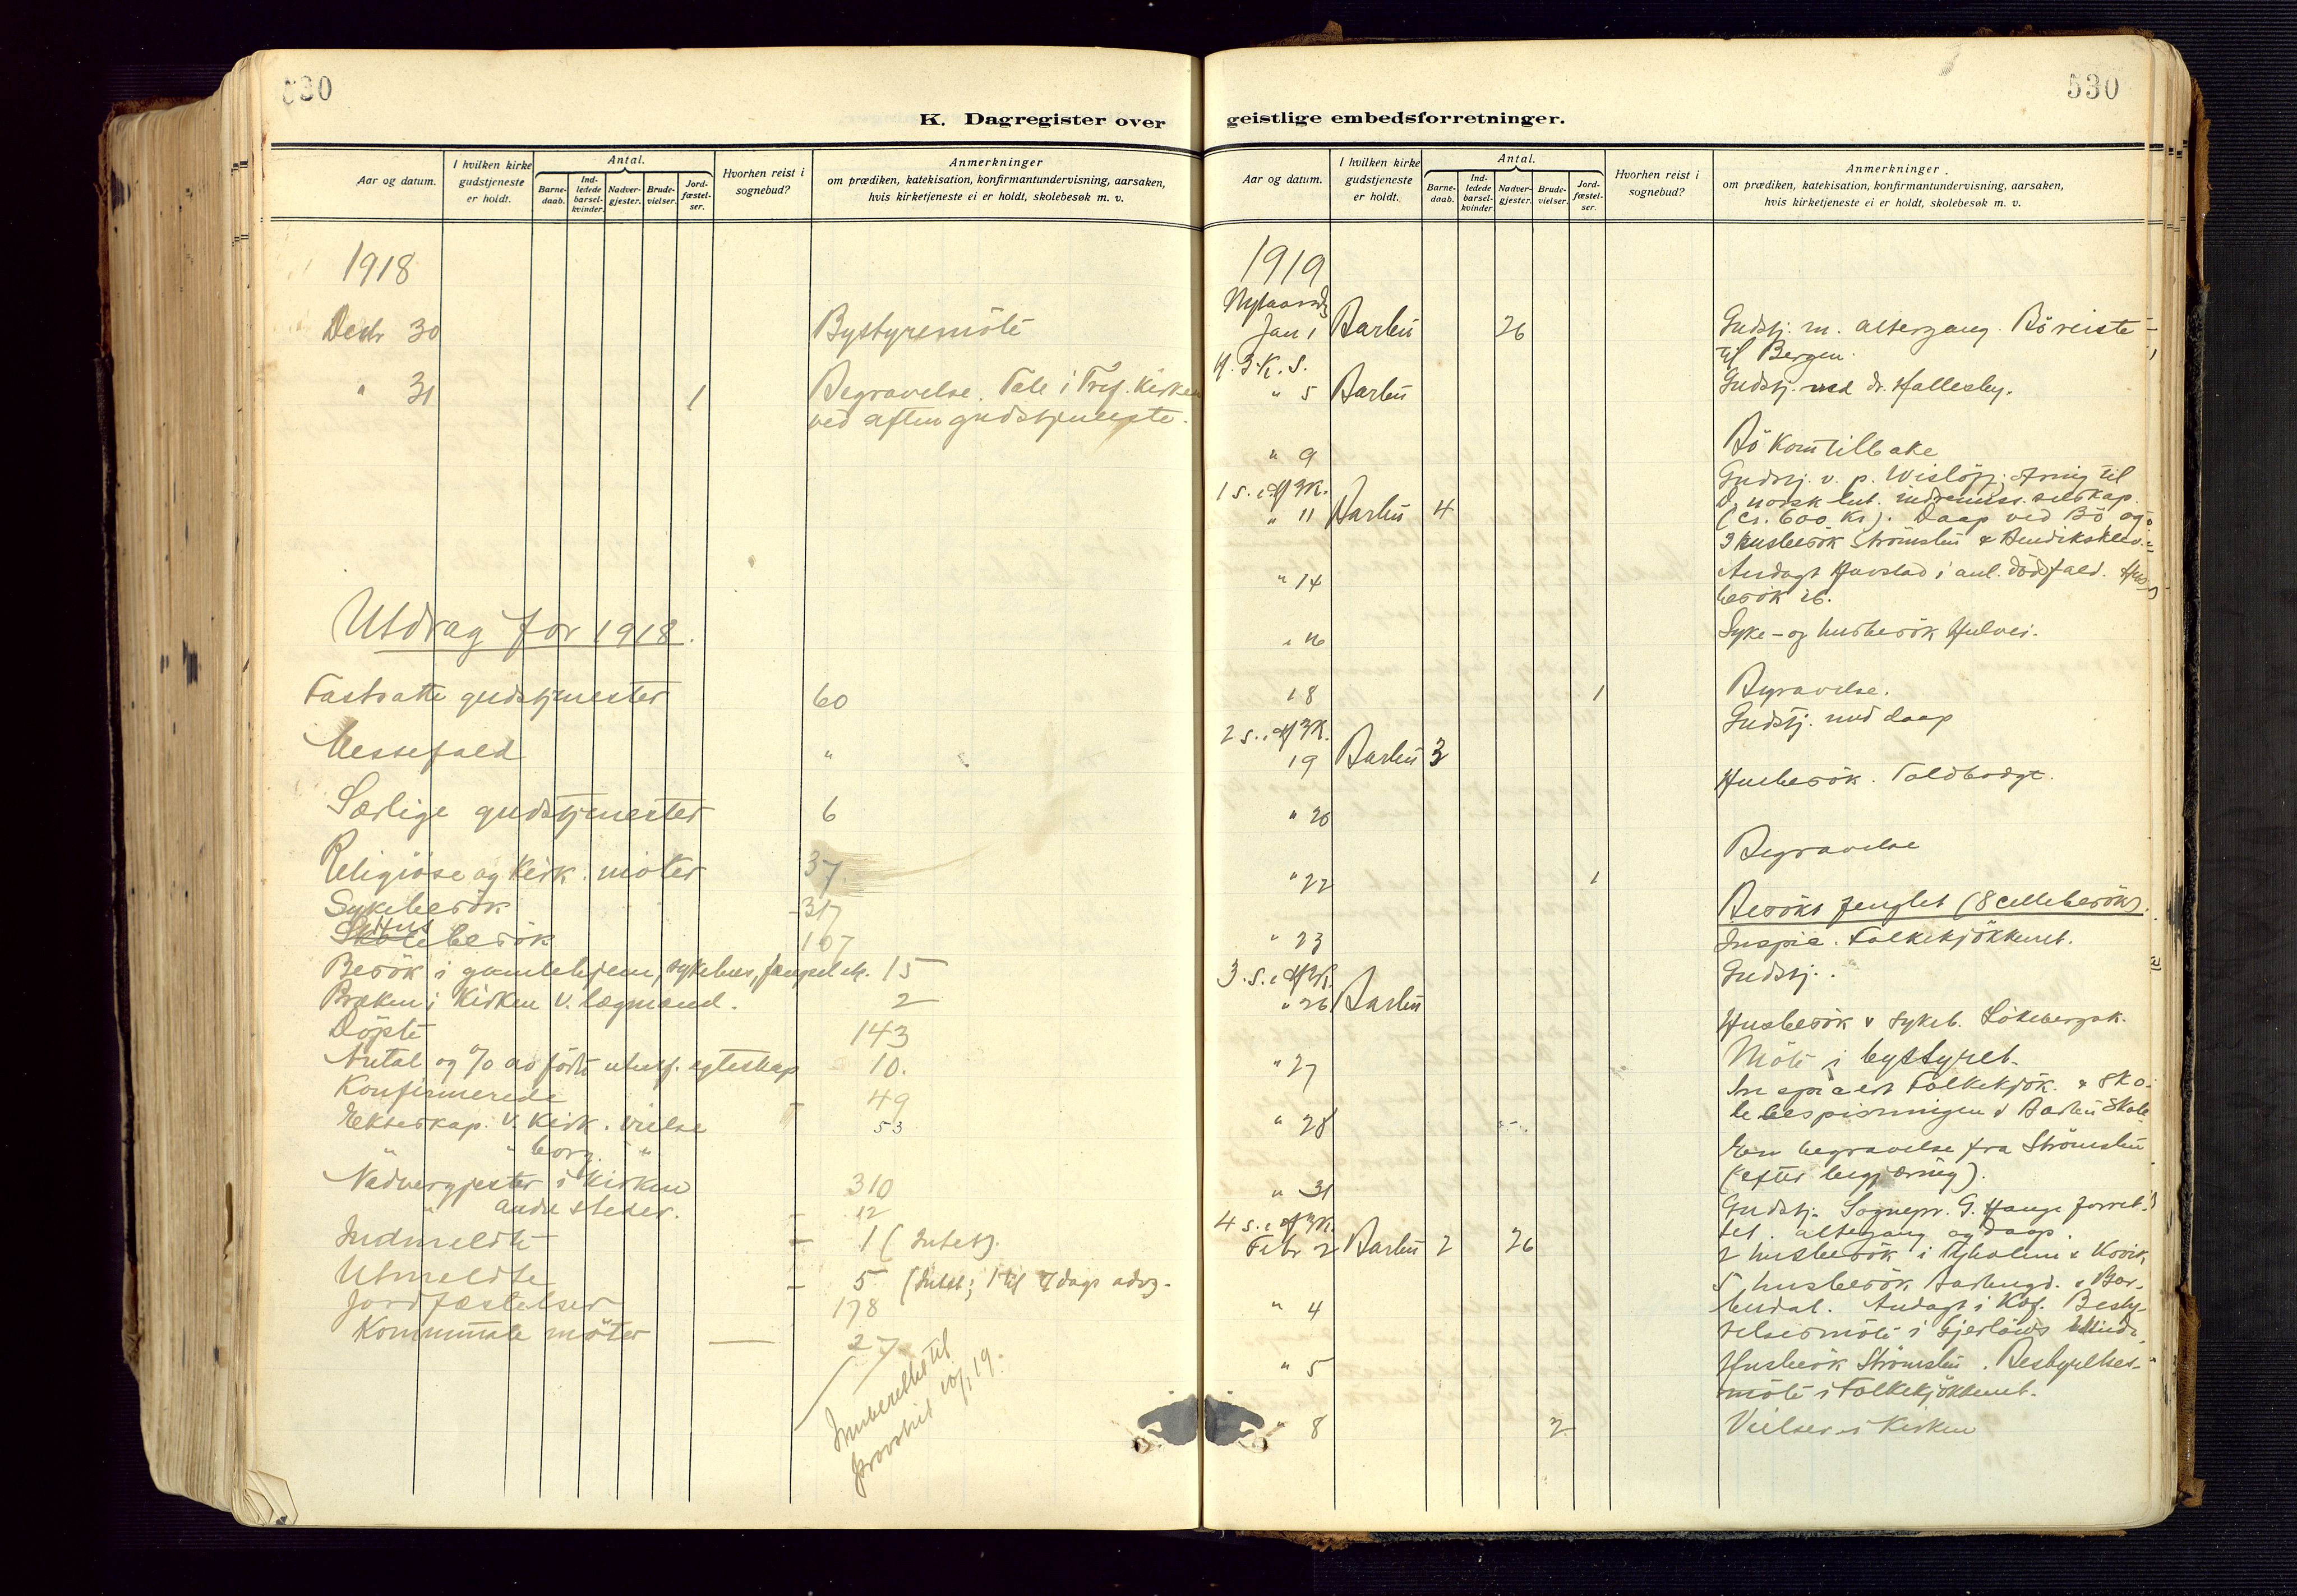 530
K. Dagregister over
Aar og datum.
I hvilken kirke gudstjeneste er holdt.
Antal.
Barne-daab.
Ind-ledede barsel-kvinder.
Nadver-gjester.
Brude-vielser.
Jord-fæstel-ser.
Hvorhen reist i sognebud?
Anmerkninger
om prædiken, katekisation, konfirmantundervisning, aarsaken,
hvis kirketjeneste ei er holdt, skolebesøk m. v.
1918
Decbr 30 Bystyremöte
" 31 1 Begravelse. Tale i Tref. Kirken
ved aftengudstjeneste.
Utdrag for 1918.
Fastsatte gudstjenester 60
Messefald "
Særlige gudstjenester 6
Religiöse og kirk. möter 37
Sykebesök 317
Husbesök 167
Besök i gamlehjem, sykehus, fængsel etc. 15
Præken i Kirken v. lægmand. 2
Döpte 143
Antal og % av födte utenf. egteskap 10.
Konfirmerede 49
Ekteskap. v. kirk. vielse 53
" borg. "
Nadvergjester i Kirken 310
" andre steder. 12
Indmeldte 1 (Intet).
Utmeldte 5 (Intet; 1 til 7 dags adv.
Jordfæstelser 178
Kommunale möter 27
Innberettet til
provstiet 10/1 19.
530
geistlige embedsforretninger.
Aar og datum.
I hvilken kirke gudstjeneste er holdt.
Antal.
Barne-daab.
Ind-ledede barsel-kvinder
Nadver-gjester.
Brude-vielser.
Jord-fæstel-ser.
Hvorhen reist i sognebud?
Anmerkninger.
om prædiken, katekisation, konfirmantundervisning, aarsaken,
hvis kirketjeneste ei er holdt, skolebesøk m. v.
1919
Nytaarsd.
Jan 1 Barbu 26 Gudstj. m. altergang. Bö reiste
til Bergen.
H. 3. K. S.
" 5 Barbu Gudstj. ved dr. Hallesby.
" 9 Bö kom tilbake
1 s. e. H3K.
" 11 Barbu 4 Gudstj. v. p. Wislöff; ofring til
d. norsk lut. indremiss. selskap.
(ca. 600 kr). Daap ved Bö og
3 husbesök Strömsbu & Bendiksklev.
" 14 Andagt Havstad i anl. dödsfald. Hus-
besök 26.
" 16 Syke- og husbesök Hulvei.
18 1 Begravelse.
2 s. e. H3K.
19 Barbu 3 Gudstj. med daap
" 20 Husbesök. Toldbodgt.
" 22 1 Begravelse
" 23 Besökt fengslet (8 cellebesök).
Inspic. Folkekjökkenet.
3. s. e. H3K.
" 26 Barbu Gudstj.
" 27 Husbesök & sykeb. Lökebergsk.
Möte i bystyret.
" 28 Inspicert Folkekjök. & sko-
lebespisningen v Barbu Skole
" 31 En begravelse fra Strömsbu
(efter begjæring).
4 s. e. H3K.
Febr 2 Barbu 2 26 Gudstj. Sognepr. G. Hauge forret-
tet. altergang og daap.
2 husbesök i & Kvvik
" 4 5 husbesök Barbugd. & Bar-
budal. Andagt i Besty-
relsesmöte i Gjerlöws Minde.
" 5 Husbesök Strömsbu. Bestyrelses-
möte i Folkekjökkenet.
" 8 2 Vielser i Kirken